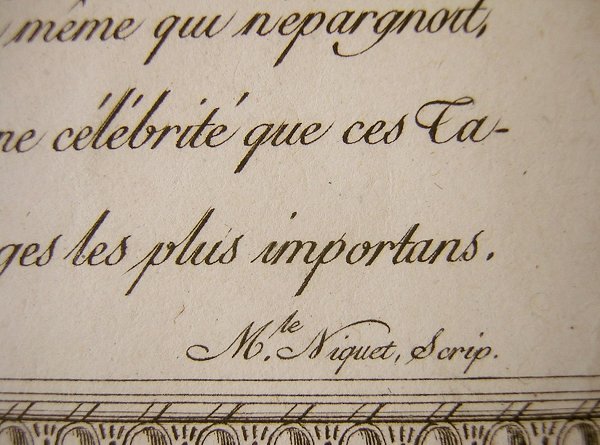 même qui n'epargnoit,
ne célébrité que ces Ta-
ges les plus importans.
M.lle Niquet, Scrip.